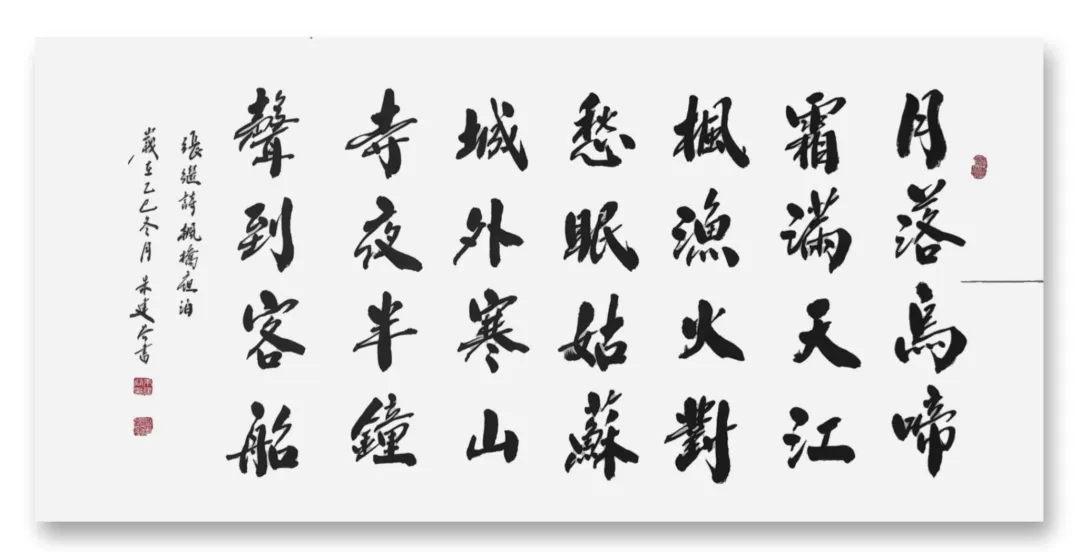 月落烏啼
霜滿天江
楓漁火對
愁眠姑蘇
城外寒山
寺夜半鐘
聲到客船
張繼詩楓橋夜泊
歲在乙巳冬月 朱建 書